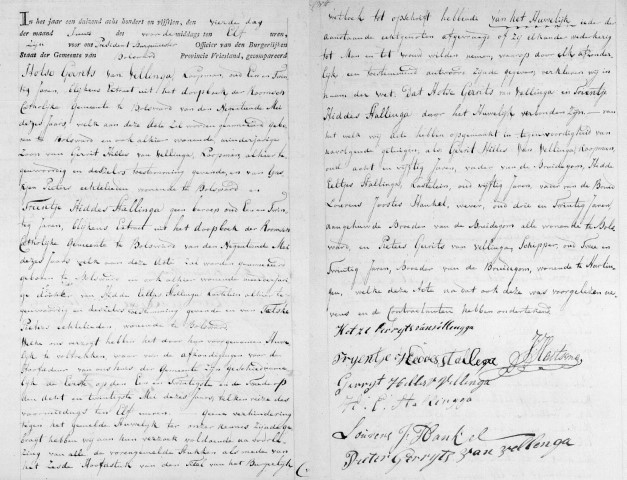 In het jaar een duizend acht honderd en vijftien, den vierde dag
der maand Junij des voormiddags ten Elf uren,
zijn voor ons President Burgemeester Officier van den Burgerlijken
Staat der Gemeente van Bolsward Provincie Friesland, gecompareerd
Hotse Gerrits van Vellinga, Koopman, oud Een en Twin
tig Jaren, blijkens Extract uit het doopboek der Roomsch
Catholijke Gemeente te Bolsward van den Negentiende Mei
dezes Jaars, welk aan deze Acte zal worden geannexeerd gebo
ren te Bolsward en ook alhier wonende, minderjarige
Zoon van Gerrit Hilles van Vellinga, Koopman alhier te
genwoordig en deszelfs toestemming gevende, en van
Pieters wonende te Bolsward en
Trientje Heddes Hallinga geen beroep oud Een en Twin
tig Jaren, blijkens Extract uit het doopboek der Roomsch
Catholijke Gemeente te Bolsward van den Negentiende Mei
dezes Jaars welk aan deze Acte zal worden geannexeerd
geboren te Bolsward en ook alhier wonende minderjari
ge dochter van Hedde Eeltjes Hallinga Kastelein alhier te
genwoordig en deszelfs toestemming gevende en van Tietske
Pieters wonende te Bolsward
Welke ons verzogt hebben dat door hen voorgenomen Huwe
lijk te voltrekken, waar van de afkondigingen voor de
Hoofddeur van ons huis der Gemeente zijn geschied
lijk de eerste op den Een en Twintigste en de Tweede op
den acht en twintigste Mei dezes Jaars, telken reize des
voormiddags ten Elf uren. geene verhindering
tegen het gemelde Huwelijk ter onzer kennis zijnde ge
bragt hebben wij aan hun verzoek voldoende na voorle
zing van alle de voorengemelde Stukken als mede van
het zesde Hoofdstuk van den Titel van het Burgerlijk
wetboek tot opschrift hebbende van het Huwelijk ieder der
aanstaande echtgenoten afgevraagd of zij elkander wederzijds
tot Man en tot vrouw wilden nemen, waarop door elk afzonder
lijk een toestemmend antwoord zijnde gegeven verklaren wij in
naam der wet. Dat Hotse Gerrits van Vellinga en Trientje
Heddes Hallinga door het Huwelijk verbonden zijn. van
het welk wij Acte hebben opgemaakt in tegenwoordigheid van
navolgende getuigen, als Gerrit Hilles van Vellinga, Koopman,
oud acht en vijftig Jaren, vader van de Bruidegom, Hedde
Eeltjes Hallinga, Kastelein, oud vijftig Jaren, vader van de Bruid
Lourens Joostes Hankel, wever, oud drie en Twintig Jaren,
aangehuwde Broeder van de Bruidegom alle wonende te Bols
ward, en Pieter Gerrits van Vellinga, Schipper, oud Twee en
Twintig Jaren, Broeder van de Bruidegom, wonende te Harlin
gen, welke deze Acte na dat ook deze was voorgelezen ne
vens en de Contractanten hebben ondertekend.
Hotze Gerryts van Vellingga
Tryentje Heeres Hallega
Gerryt Hilles Vellinga
H. E. Hallingga
Louwens J Hankel
Pieter Gerryts van Vellenga